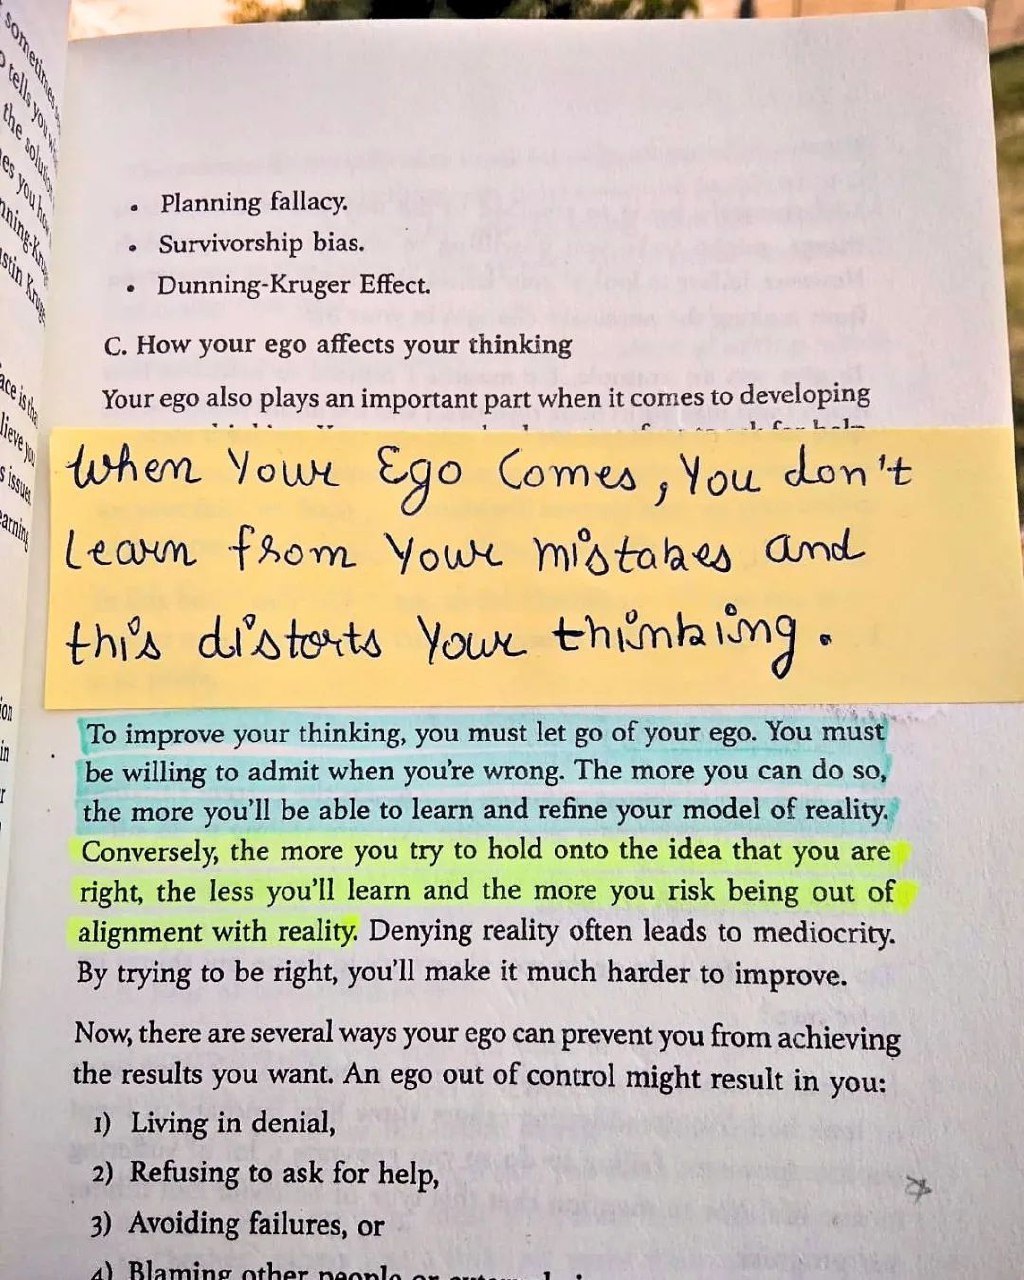 sometimes
tells you
the solution
es you
• Planning fallacy.
• Survivorship bias.
• Dunning-Kruger Effect.
C. How your ego affects your thinking
Your ego also plays an important part when it comes to developing
for help
When Your Ego Comes, You don't
learn from Your mistakes and
this distorts Your thinking.
To improve your thinking, you must let go of your ego. You must
be willing to admit when you're wrong. The more you can do so,
the more you'll be able to learn and refine your model of reality.
Conversely, the more you try to hold onto the idea that you are
right, the less you'll learn and the more you risk being out of
alignment with reality. Denying reality often leads to mediocrity.
By trying to be right, you'll make it much harder to improve.
Now, there are several ways your ego can prevent you from achieving
the results you want. An ego out of control might result in you:
1) Living in denial,
2) Refusing to ask for help,
3) Avoiding failures, or
4) Blaming other people or